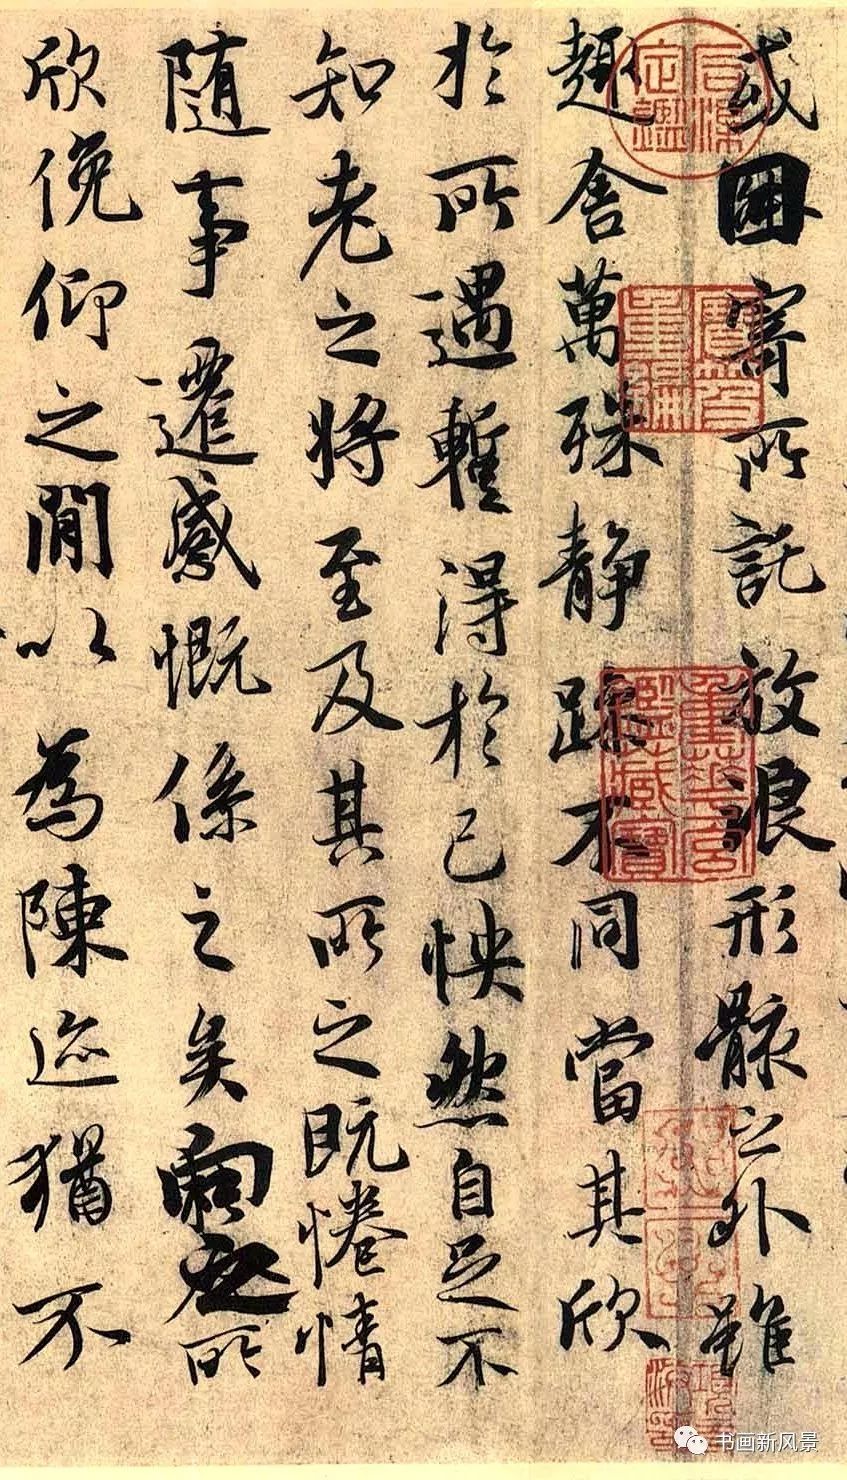 或因寄所託放浪形骸之外雖
趣舍萬殊静躁不同當其欣
於所遇暫得於己怏然自足不
知老之將至及其所之既惓情
隨事遷感慨係之矣向之所
欣俛仰之閒以為陳迹猶不
石渠定鑑
寶笈重編
重華宮鑑藏寶
书画新风景